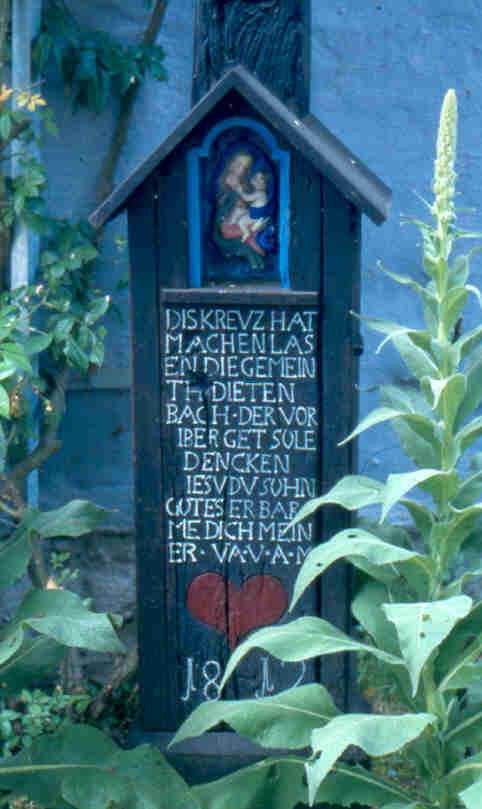 DIS KREVZ HAT
MACHEN LAS
EN DIE GEMEIN
TH DIETEN
BACH · DER VOR
IBER GET SOLE
DENCKEN
IESV DV SOHN
GOTES ERBAR
ME DICH MEIN
ER · VA · V · A · M
1812